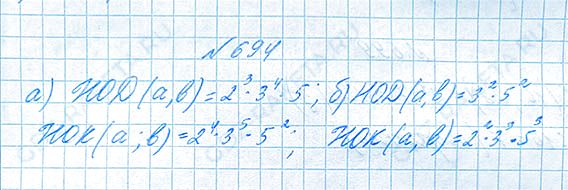 №694
а) НОД(a,b)=2³·3⁴·5; б) НОД(a,b)=3²·5²
НОК(a;b)=2⁴·3⁵·5²; НОК(a,b)=2²·3³·5³